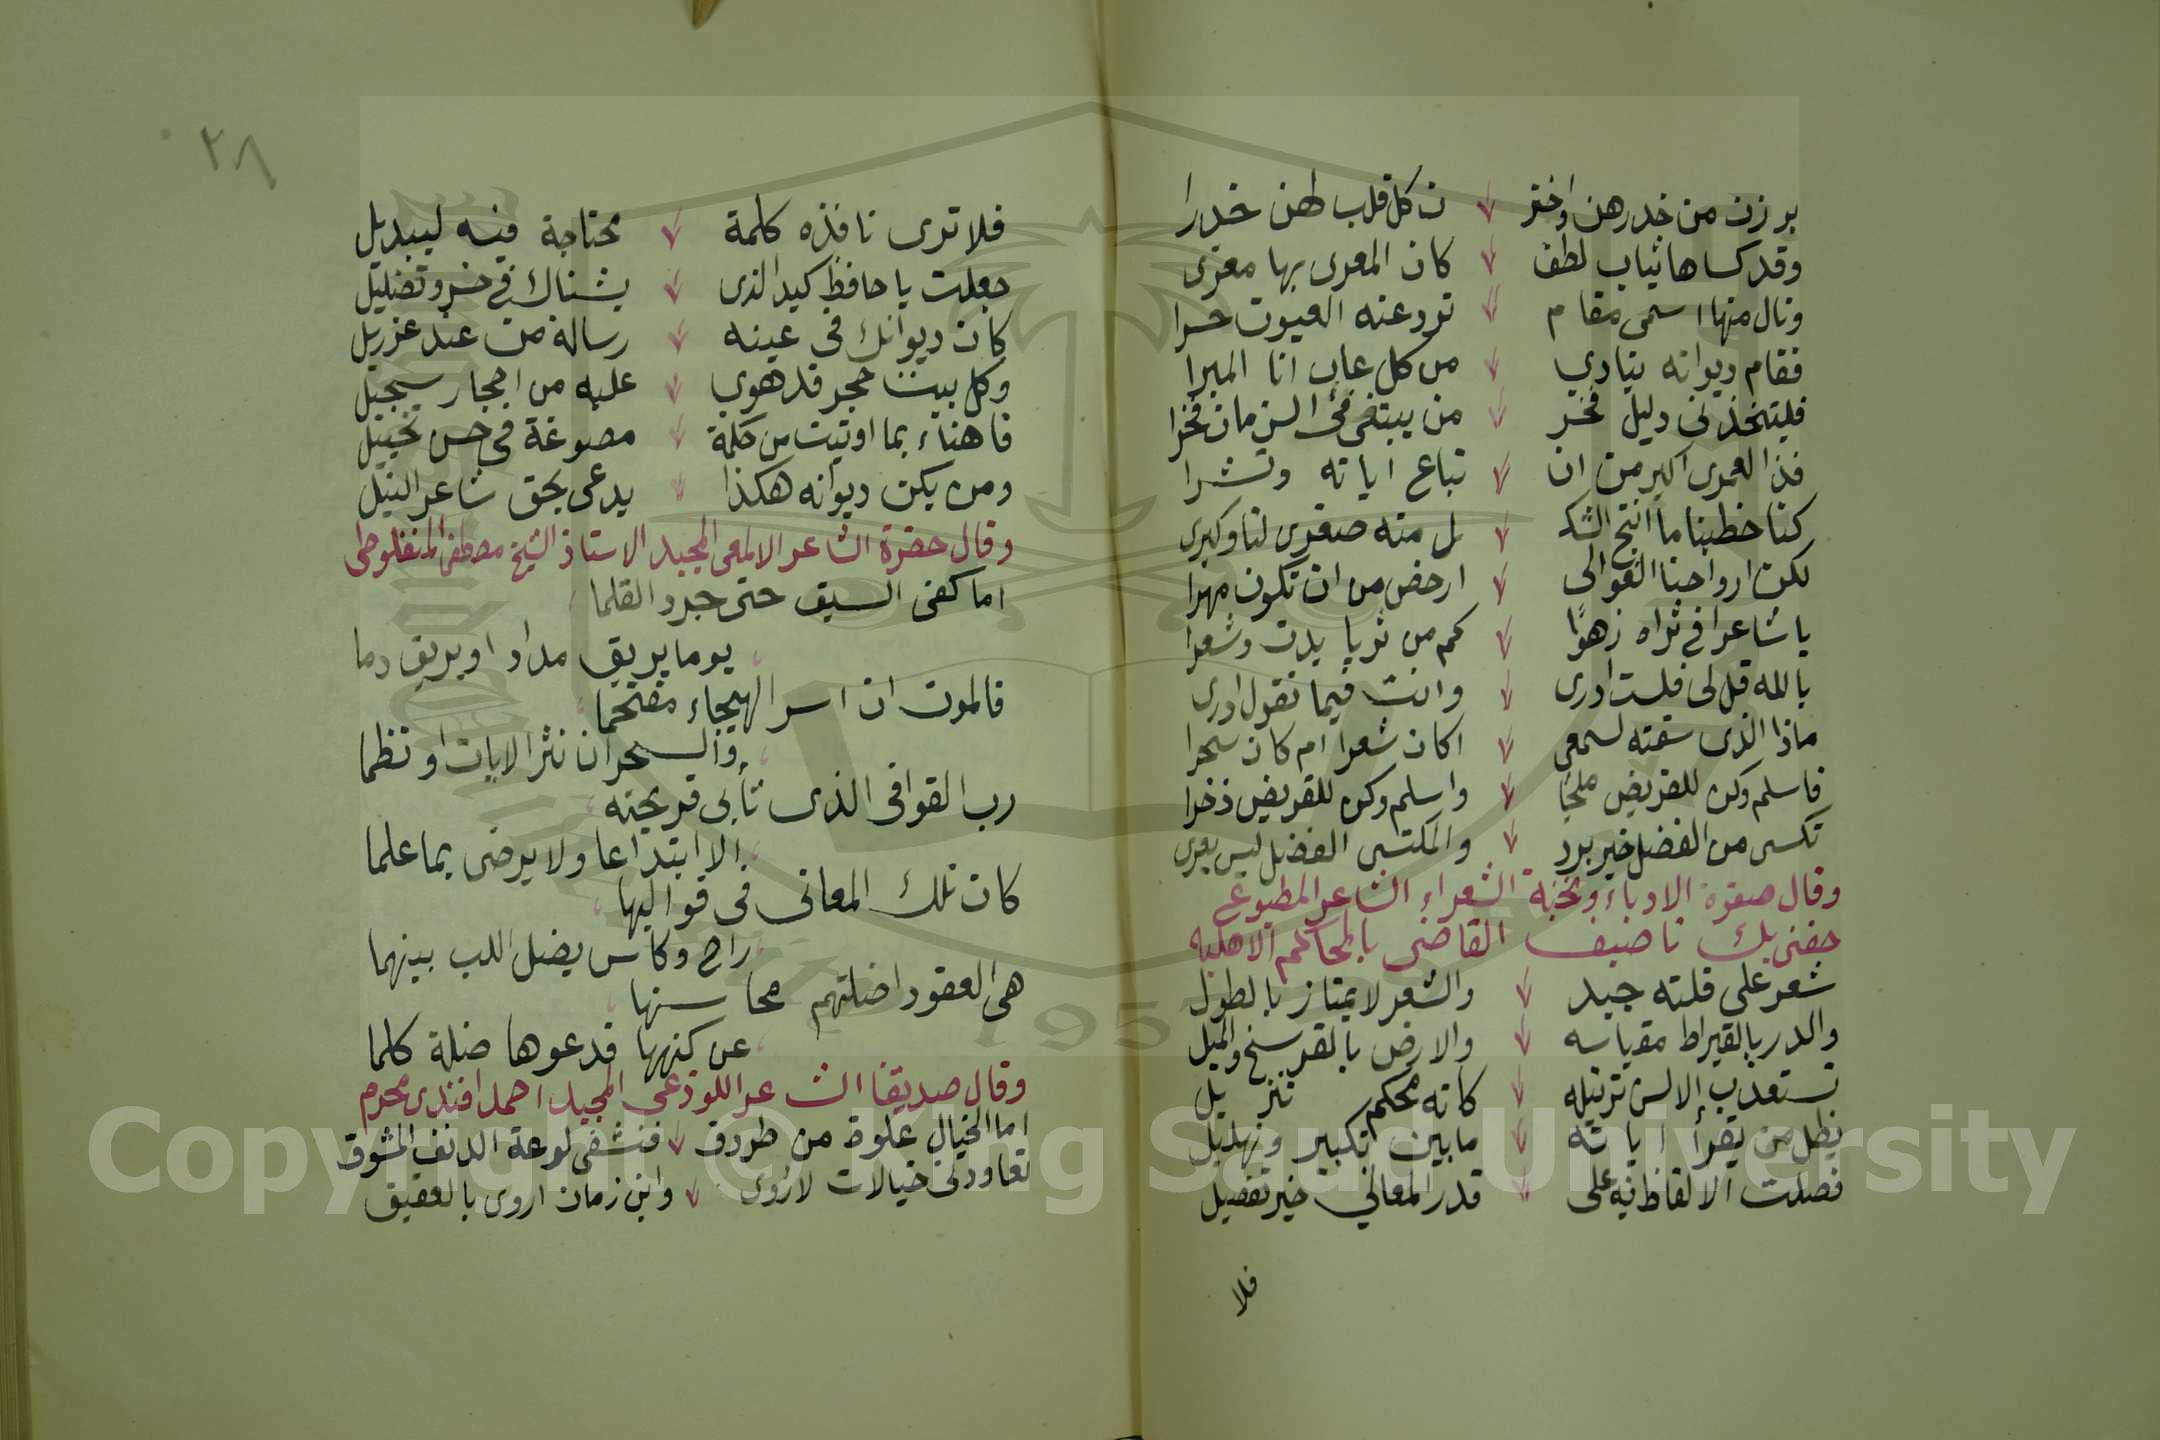 برزن من خدرهن واختر ن كل قلب لهن خدرا
وقد كساها ثياب لطف كان المعرى بها معرى
ونال منها اسمى مقام ترد عنه العيون حسرا
فقام ديوانه ينادي من كل عاب انا المبرا
فليتخذنى دليل فخر من يبتغى فى الزمان فخرا
فذا لعمرى اكبر من ان تباع اياته وتشرا
كنا خطبنا ما انتج الشك ل منه صغرى لنا وكبرى
لكن ارواحنا الغوالى ارخص من ان تكون مهرا
يا شاعرا فى ثراه زهوًا كم من ثريا بدت وشعرا
بالله قل لى فلست ادرى وانت فيما تقول ادرى
ماذا الذى سقته لسمعى اكان شعرا ام كان سحرا
فاسلم وكن للقريض ملجًا واسلم وكن للقريض ذخرا
تكسى من الفضل خير برد والمكتسى الفضل ليس يعرى
وقال صفوة الادباء ونخبة الشعراء الشاعر المطبوع
حفنى بك ناصيف القاضى بالمحاكم الاهليه
شعر على قلته جيد والشعر لا يمتاز بالطول
والدر بالقيراط مقياسه والارض بالفرسخ والميل
تستعذب الالسن ترتيله كانه محكم تنزيل
يظل من يقرأ اياته ما بين تكبير وتهليل
فصلت الالفاظ فيه على قدر المعاني خير تفصيل
فلا
٢٨
فلا ترى نافذه كلمة محتاجة فيه لتبديل
جعلت يا حافظ كيد الذى يشناك فى خسر وتضليل
كان ديوانك فى عينه رسالة من عند عزريل
وكل بيت حجر قد هوى عليه من احجار سجيل
فاهناء بما اوتيت من حكمة مصوغة فى حسن تخييل
ومن يكن ديوانه هكذا يدعى بحق شاعر النيل
وقال حضرة الشاعر الالمعى المجيد الاستاذ الشيخ مصطفى المنفلوطى
اما كفى السيف حتى جرد القلما
يوما يريق مداد او يريق دما
فالموت ان اسر الهيجاء مقتحما
والسحر ان نثر الايات او نظما
رب القوافى الذى تأبى قريحته
الا ابتداعا ولا يرضى بما علما
كان تلك المعانى فى قواليها
راح وكاس يضل اللب بينهما
هى العقود اضلتهم محاسنها
عن كنهها فدعوها ضلة كلما
وقال صديقنا الشاعر اللوذعى المجيد احمد افندى محرم
اما الخيال علوة من طروق فنشفى لوعة الدنف المشوق
تعاودنى خيالات لاروى واين زمان اروى بالعقيق
Copyright © King Saud University
1957